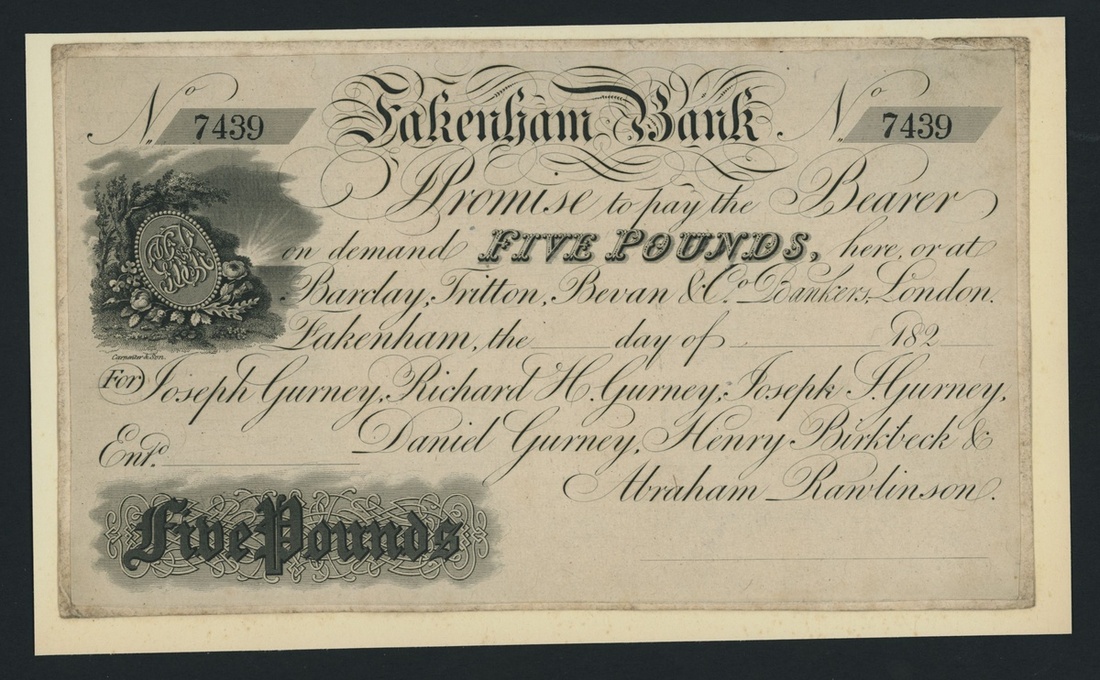 No 7439 Fakenham Bank. No 7439
I Promise to pay the Bearer
on demand FIVE POUNDS, here, or at
Barclay, Tritton, Bevan & Co. Bankers, London.
Fakenham, the ____ day of ________ 182__
For Joseph Gurney, Richard H. Gurney, Joseph J. Gurney,
Entd. ________ Daniel Gurney, Henry Birkbeck &
Abraham Rawlinson.
Five Pounds